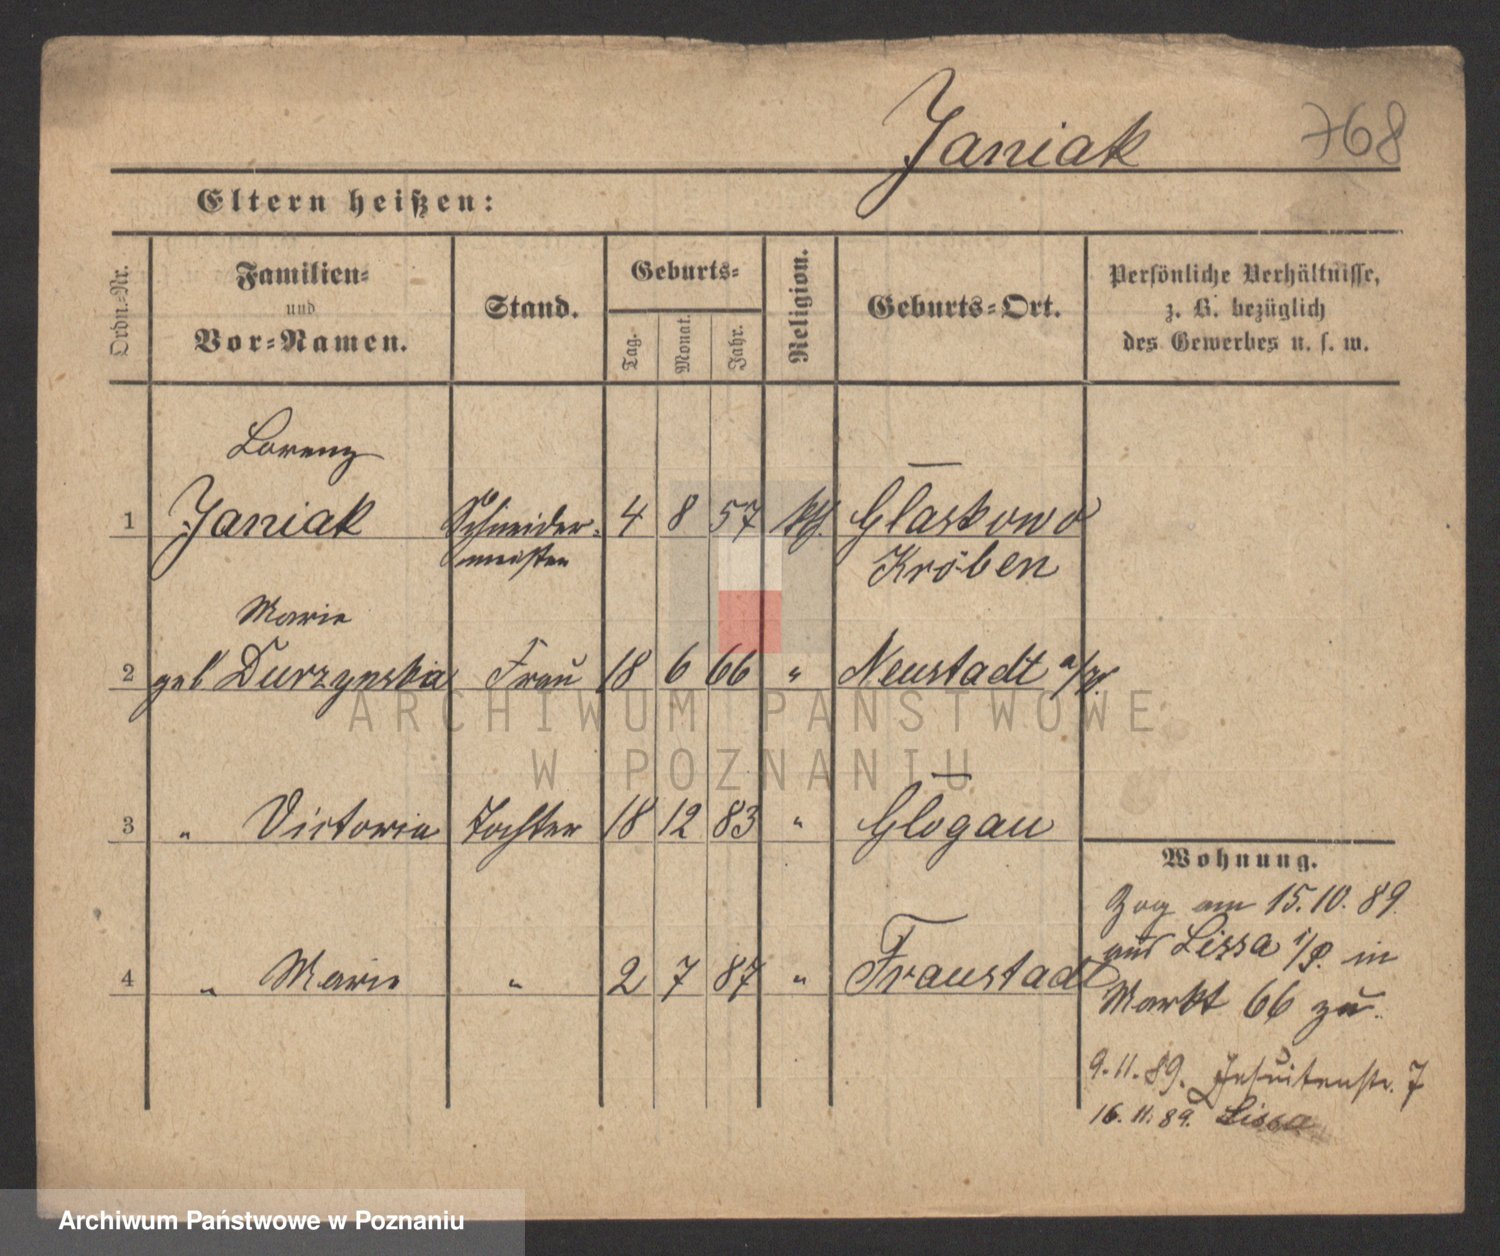 Janiak 768
Eltern heißen:
Ordn.-Nr.
Familien-
und
Vor-Namen.
Stand.
Geburts-
Tag.
Monat.
Jahr.
Religion.
Geburts-Ort.
Persönliche Verhältnisse,
z. B. bezüglich
des Gewerbes u. s. w.
Lorenz
1 Janiak Schneider- 4 8 57 kth. Glaskowo
meister Kröben
Marie
2 geb Durzynska Frau 18 6 66 " Neustadt a/W.
ARCHIWUM PAŃSTWOWE
W POZNANIU
3 " Victoria Tochter 18 12 83 " Glogau
Wohnung.
Zog am 15.10.89.
aus Lissa i/P. in
4 " Marie " 2 7 87 " Fraustadt
Markt 66 zu.
9.11.89. Jesuitenstr. 7
16.11.89. Lissa
Archiwum Państwowe w Poznaniu